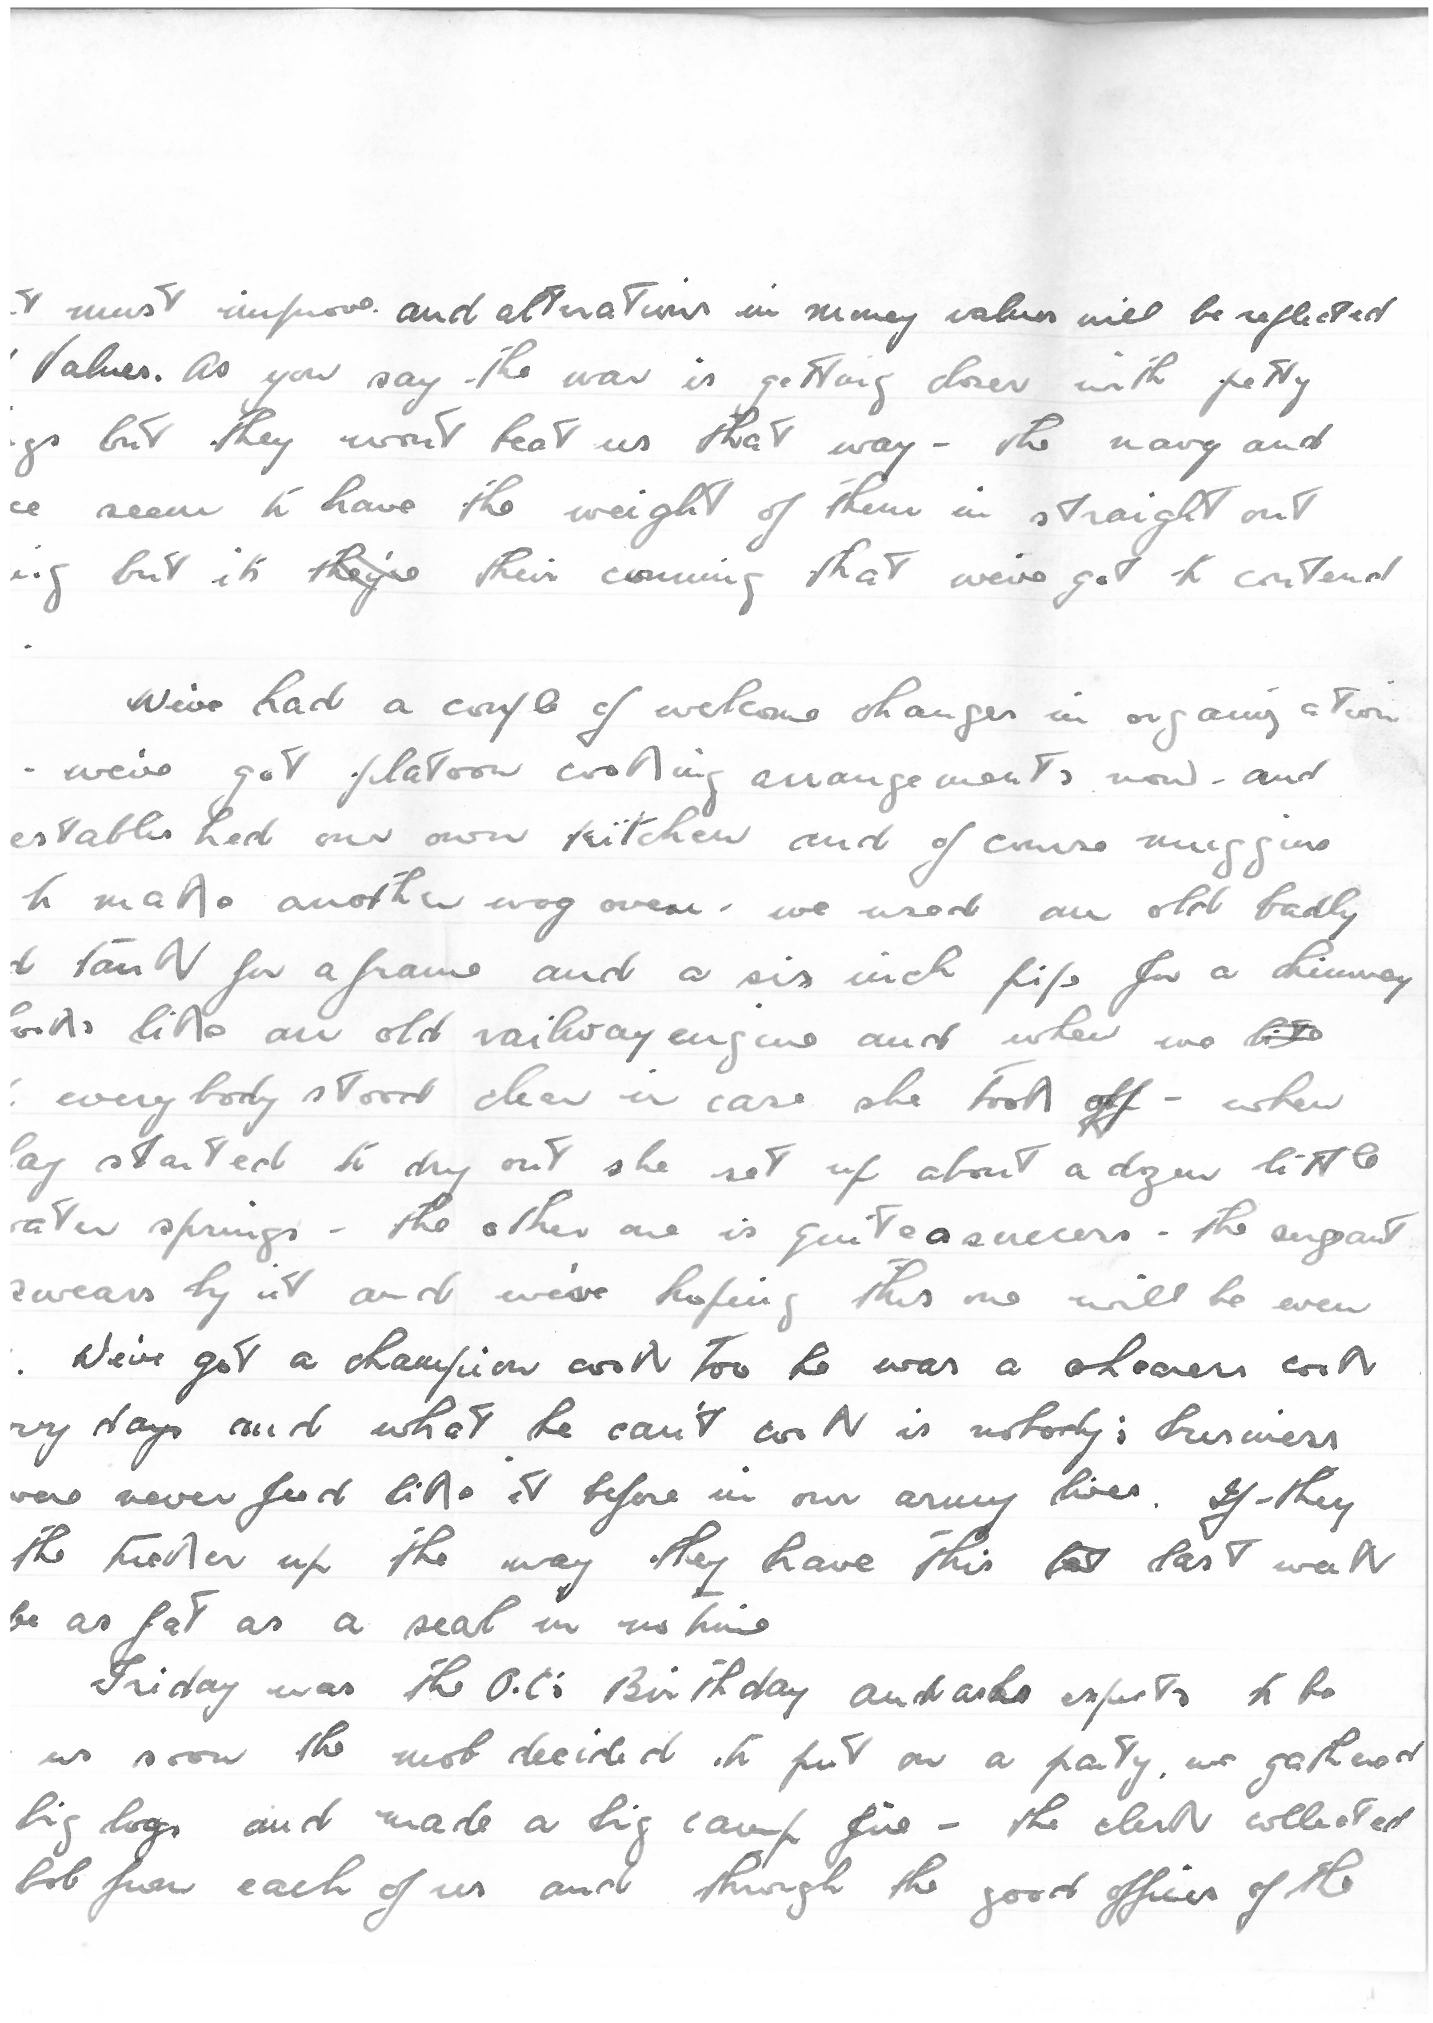 t must improve. and alterations in money values will be reflected
Values. As you say the war is getting closer with petty
gs but they wont beat us that way - the navy and
ce seem to have the weight of them in straight out
ing but its they're their cunning that weve got to contend
.
We've had a couple of welcome changes in organization
- we've got platoon cooking arrangements now - and
established our own kitchen and of course muggins
to make another wog oven - we used an old badly
d tank for a frame and a six inch pipe for a chimney
looks like an old railway engine and when we
everybody stood clear in case she took off - when
lay started to dry out she set up about a dozen little
ater springs - the other one is quite a success - the sergeant
swears by it and we've hoping this one will be even
. We've got a champion cook too he was a shearers cook
vvy days and what he can't cook is nobody's business
were never feed like it before in our army lives. If they
the tucker up the way they have this last week
be as fat as a seal in no time
Friday was the O.C's Birthday and as he expects to be
us soon the mob decided to put on a party. we gathered
big logs and made a big camp fire - the clerk collected
bob from each of us and through the good offices of the